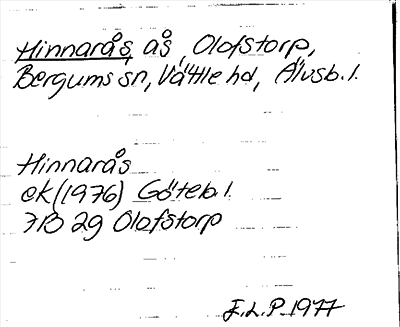 Hinnarås, ås, Olofstorp,
Bergums sn, Vättle hd, Älvsb. l.
Hinnarås
ek (1976) Göteb. l.
7B 2g Olofstorp
F.L.P. 1977